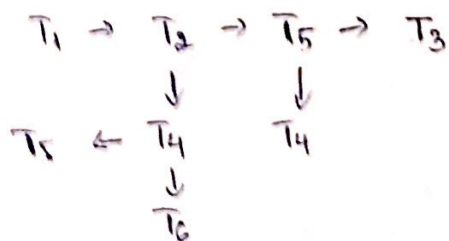 T₁ → T₂ → T₅ → T₃
↓ ↓
T₅ ← T₄ T₄
↓
T₆